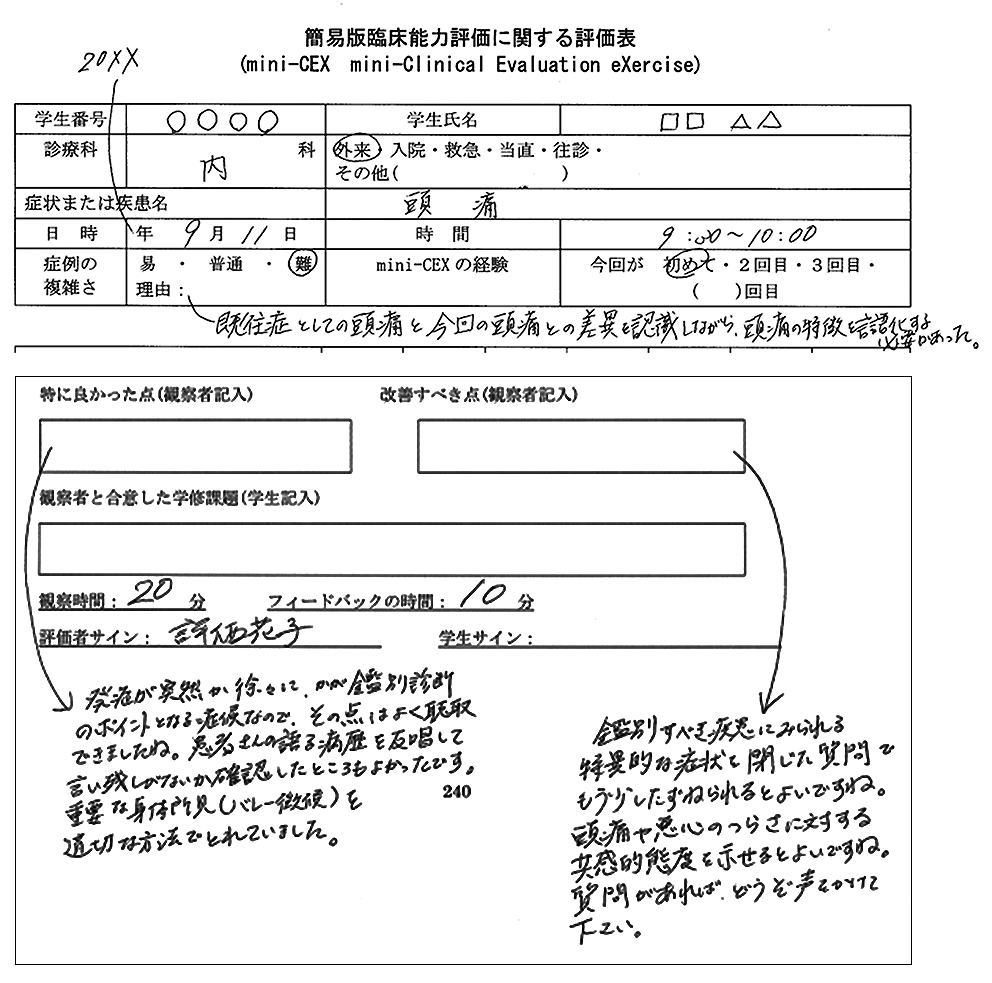 簡易版臨床能力評価に関する評価表
(mini-CEX mini-Clinical Evaluation eXercise)
20XX
学生番号 ○○○○ 学生氏名 □□ △△
診療科 内 科 外来・入院・救急・当直・往診・
その他( )
症状または疾患名 頭痛
日時 年 9月 11日 時間 9:00〜10:00
症例の 易・普通・難 mini-CEXの経験 今回が 初めて・2回目・3回目・
複雑さ 理由: ( )回目
既往症としての頭痛と今回の頭痛との差異を認識しながら、頭痛の特徴を言語化する
必要があった。
特に良かった点(観察者記入) 改善すべき点(観察者記入)
観察者と合意した学修課題(学生記入)
観察時間: 20 分 フィードバックの時間: 10 分
評価者サイン: 評価花子 学生サイン:
発症が突然か徐々に、かが鑑別診断
のポイントとなる症候なので、その点はよく聴取
できましたね。患者さんの語る病歴を反唱して
言い残しがないか確認したところもよかったです。
重要な身体所見(バレー徴候)を
適切な方法でとれていました。
240
鑑別すべき疾患にみられる
特異的な症状を閉じた質問で
もう少したずねられるとよいですね。
頭痛や悪心のつらさに対する
共感的態度を示せるとよいですね。
質問があれば、どうぞ声をかけて
下さい。